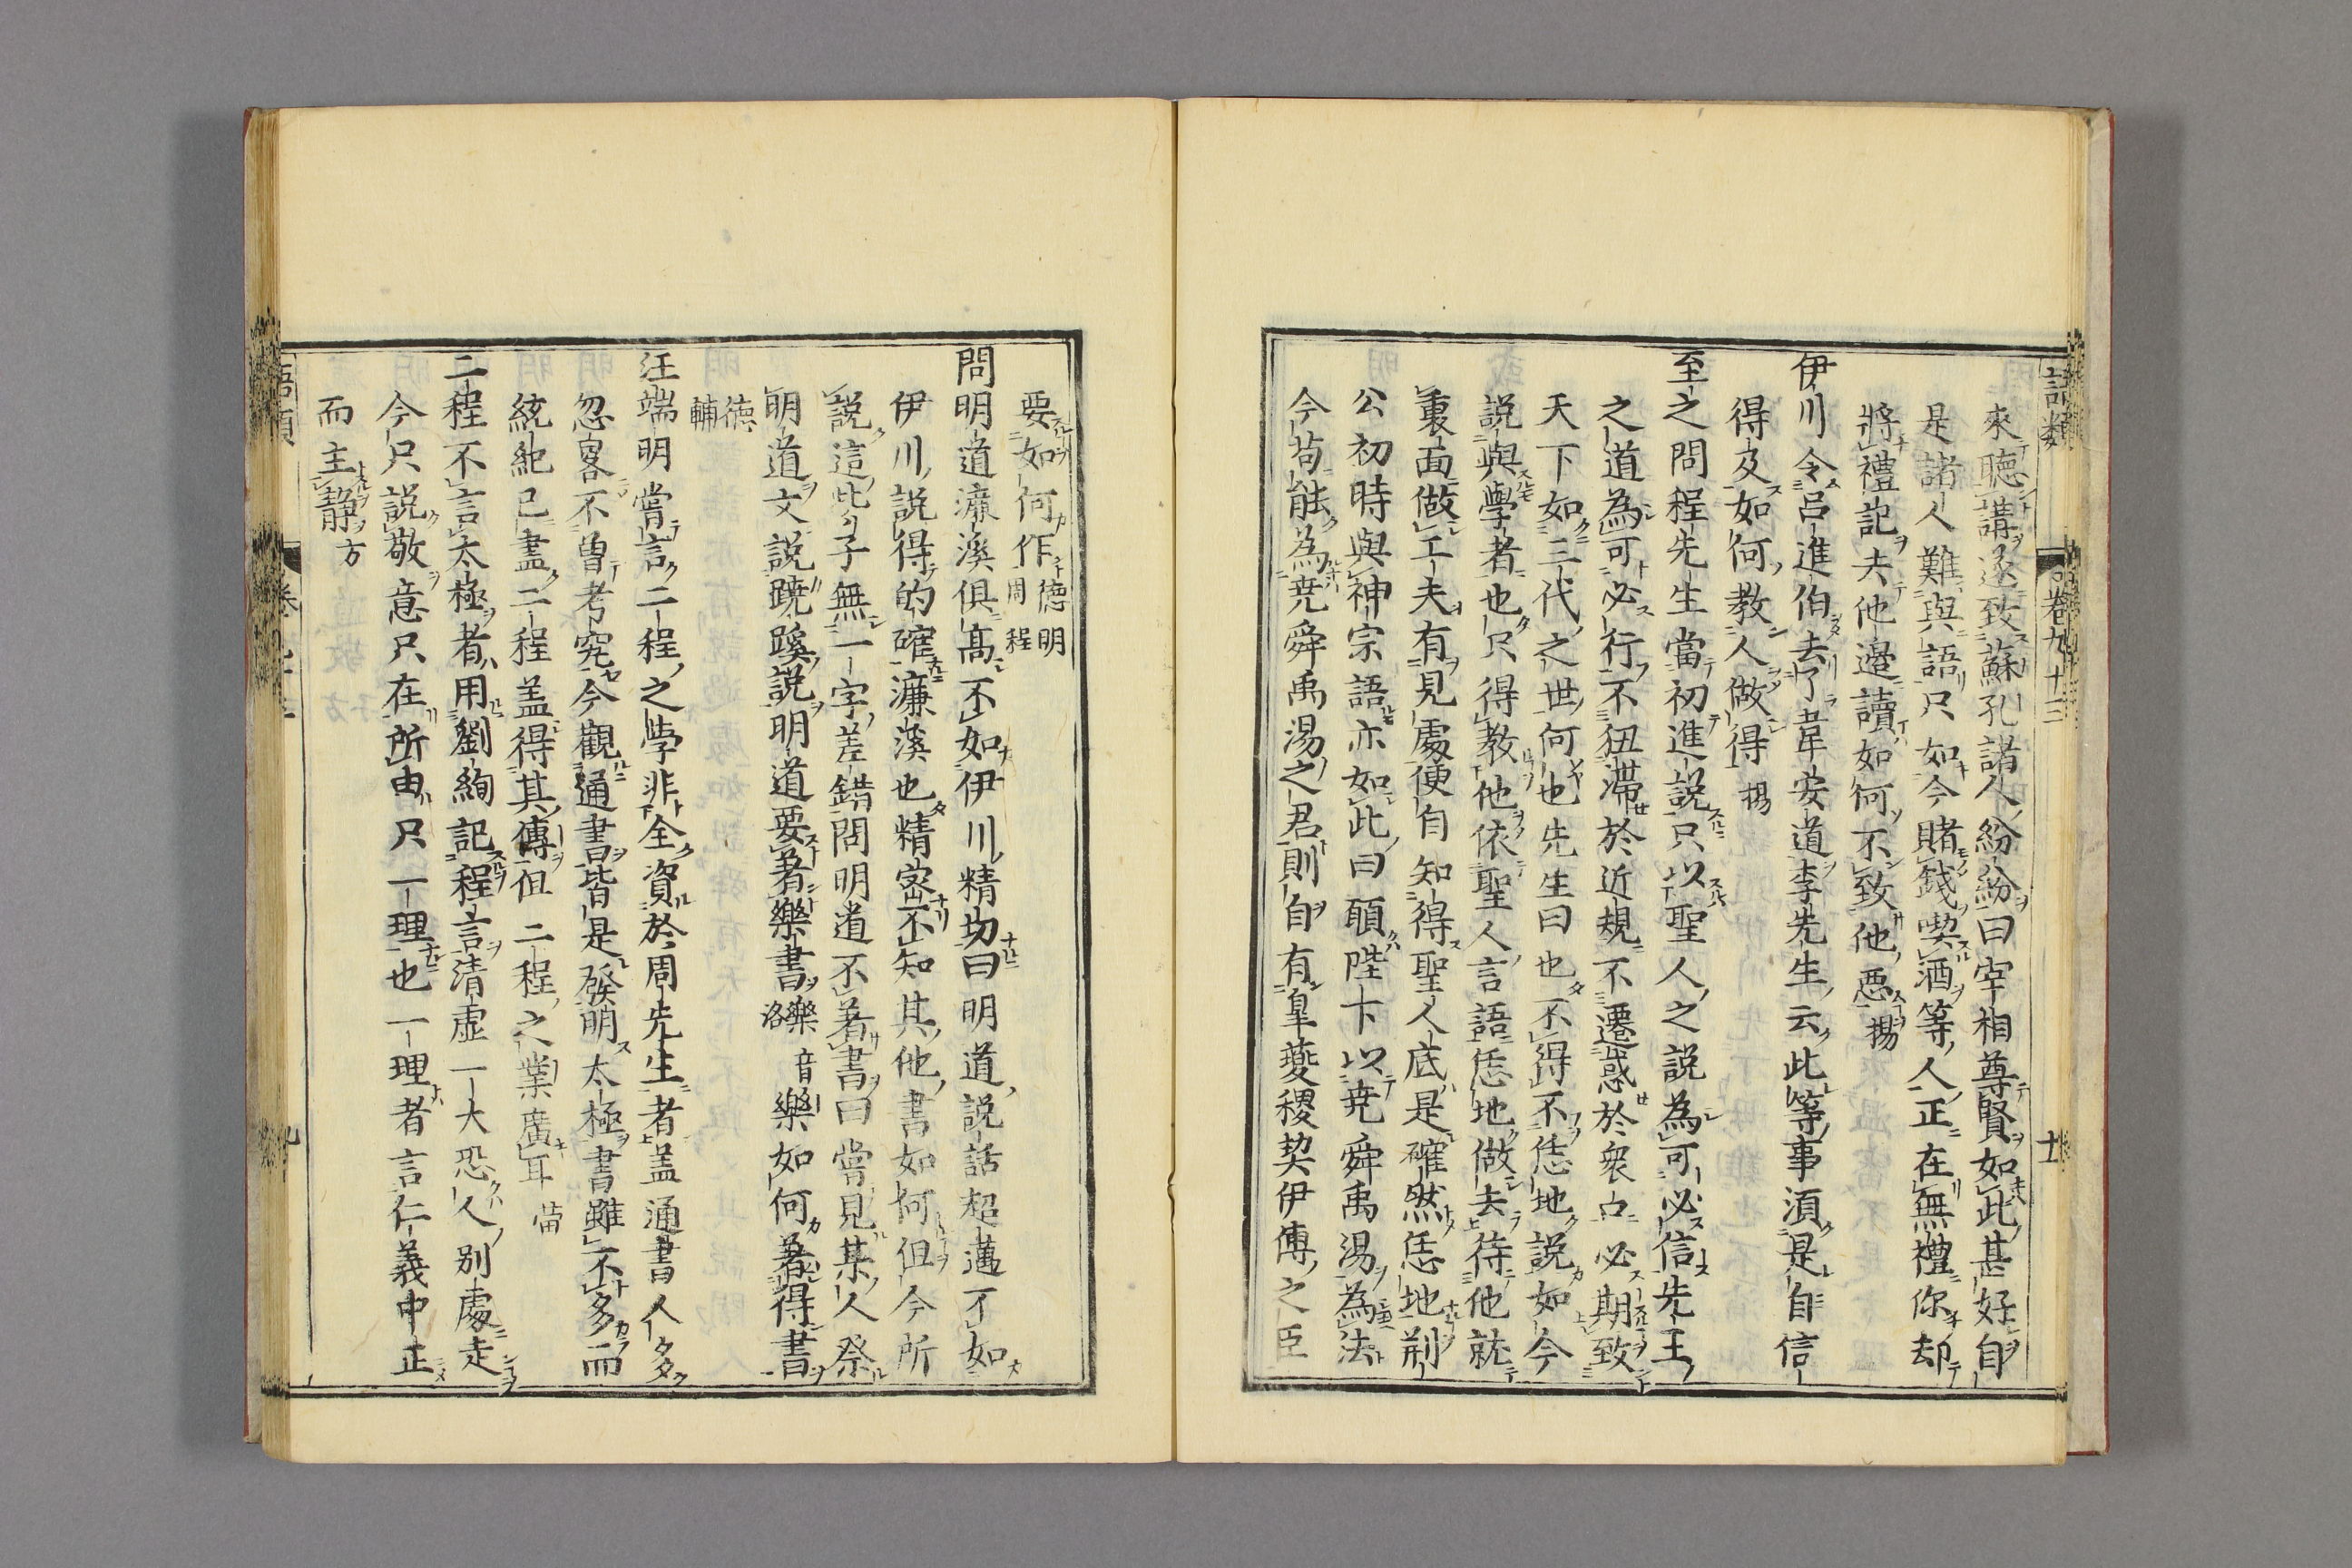 語類
卷九十三
十
來聽講遂致蘇孔諸人紛紛曰宰相尊賢如此甚好自
是諸人難與語只如今賭錢喫酒等人正在無禮你却
將禮記去他邊讀如何不致他惡 揚
伊川令呂進伯去了韋安道李先生云此等事須是自信
得及如何教人做得 揚
至之問程先生當初進說只以聖人之說為可必信先王
之道為可必行不狃滯於近規不遷惑於衆口必期致
天下如三代之世何也先生曰也不得不恁地說如今
說與學者也只得教他依聖人言語恁地做去待他就
裏面做工夫有見處便自知得聖人底是確然恁地荆
公初時與神宗語亦如此曰願陛下以堯舜禹湯為法
今苟能為堯舜禹湯之君則自有皐夔稷契伊傅之臣
要如何作 德明 周程
問明道濂溪俱高不如伊川精切曰明道說話超邁不如
伊川說得的確濂溪也精密不知其他書如何但今所
說這些子無一字差錯問明道不著書曰嘗見某人祭
明道文說蹺蹊說明道要著樂書樂音洛樂如何著得書
德輔
汪端明嘗言二程之學非全資於周先生者蓋通書人多
忽畧不曾考究今觀通書皆是發明太極書雖不多而
統紀已盡二程蓋得其傳但二程之業廣耳 㽦
二程不言太極者用劉絢記程言清虛一大恐人別處走
今只說敬意只在所由只一理也一理者言仁義中正
而主靜 方
語類
卷九十三